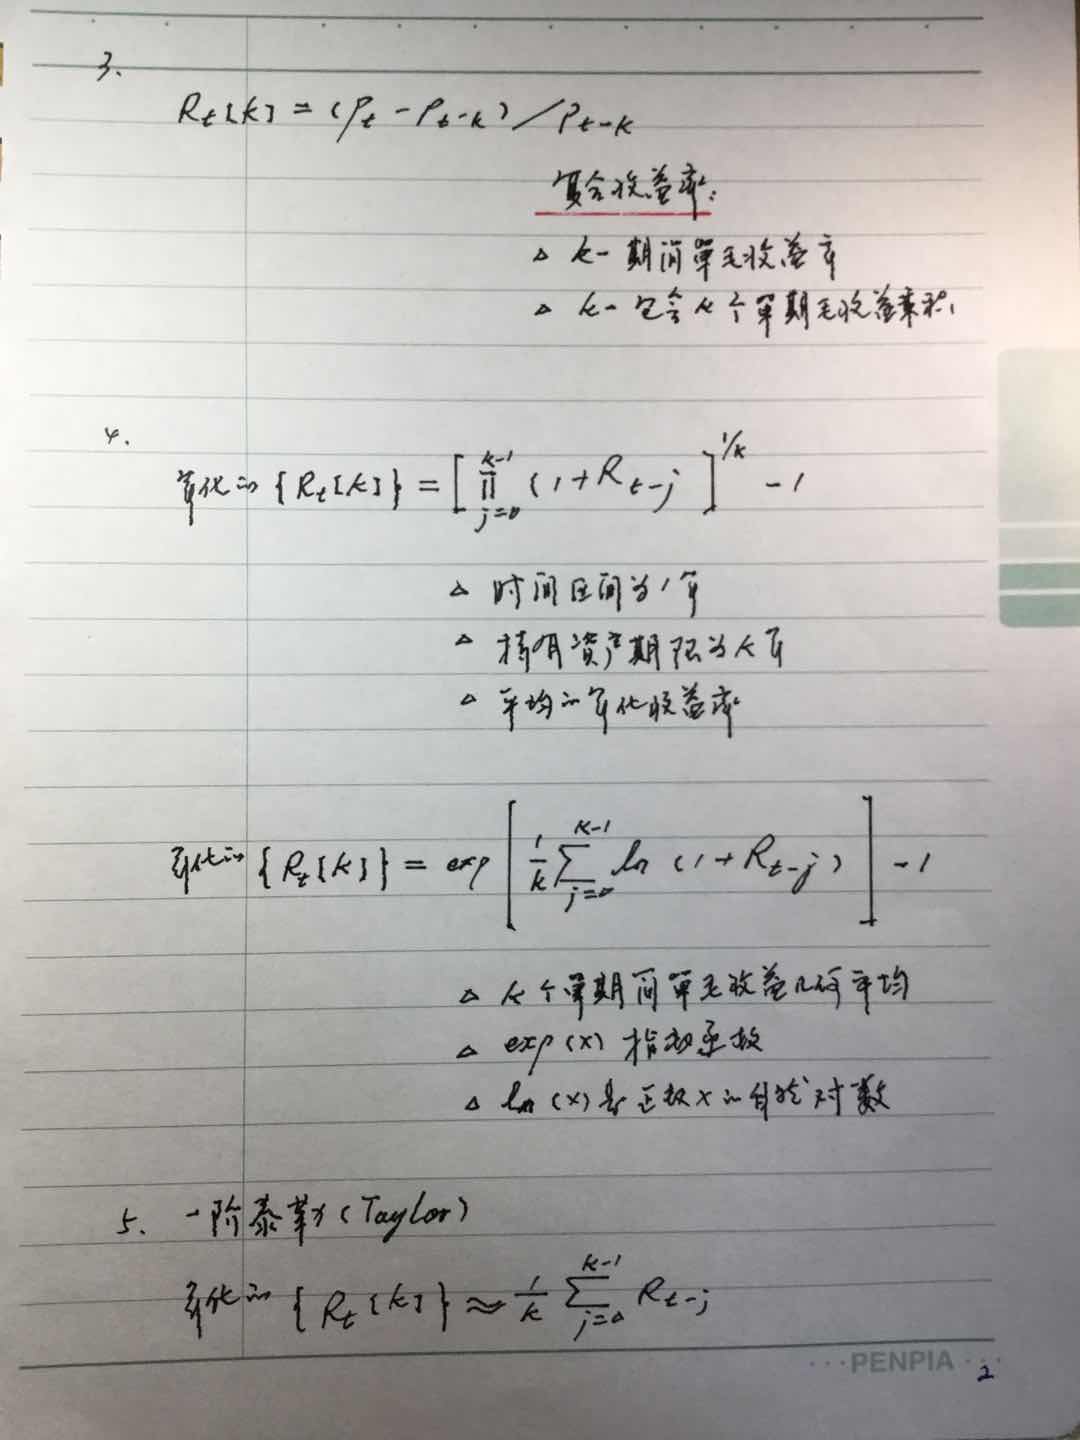 3.
R_t[k] = (P_t - P_{t-k}) / P_{t-k}
复合收益率:
△ k- 期简单毛收益率
△ k- 包含 k 个单期毛收益率积
4.
年化的 {R_t[k]} = [∏_{j=0}^{k-1} (1+R_{t-j}]^{1/k} - 1
△ 时间区间为1年
△ 持有资产期限为k年
△ 平均的年化收益率
年化的 {R_t[k]} = exp[1/k ∑_{j=0}^{k-1} ln (1+R_{t-j})] - 1
△ k 个单期简单毛收益几何平均
△ exp(x) 指数函数
△ ln(x)是正数x的自然对数
5. 一阶泰勒(Taylor)
年化的 {R_t[k]} ≈ 1/k ∑_{j=0}^{k-1} R_{t-j}
···PENPIA···
2